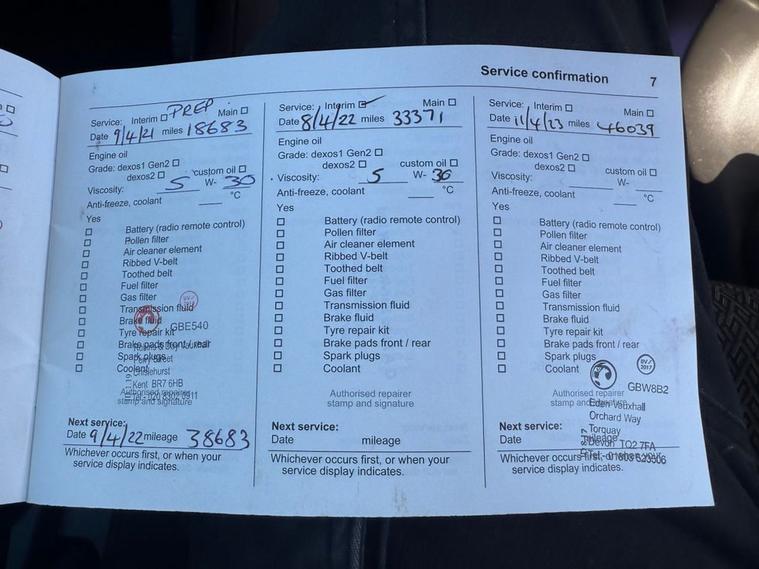 Service confirmation 7
Service: Interim ☐ PREP Main ☐
Date 9/4/21 miles 18683
Engine oil
Grade: dexos1 Gen2 ☐
dexos2 ☐ custom oil ☐
Viscosity: 5 W- 30
Anti-freeze, coolant °C
Yes
☐ Battery (radio remote control)
☐ Pollen filter
☐ Air cleaner element
☐ Ribbed V-belt
☐ Toothed belt
☐ Fuel filter
☐ Gas filter
☐ Transmission fluid
☐ Brake fluid
GBE540
☐ Tyre repair kit
☐ Brake pads front / rear
☐ Spark plugs
☐ Coolant
Street
Chislehurst
Kent BR7 6HB
Authorised repairer
stamp and signature
Next service:
Date 9/4/22 mileage 38683
Whichever occurs first, or when your
service display indicates.
Service: Interim ☑ Main ☐
Date 8/4/22 miles 33371
Engine oil
Grade: dexos1 Gen2 ☐
dexos2 ☐ custom oil ☐
Viscosity: 5 W- 30
Anti-freeze, coolant °C
Yes
☐ Battery (radio remote control)
☐ Pollen filter
☐ Air cleaner element
☐ Ribbed V-belt
☐ Toothed belt
☐ Fuel filter
☐ Gas filter
☐ Transmission fluid
☐ Brake fluid
☐ Tyre repair kit
☐ Brake pads front / rear
☐ Spark plugs
☐ Coolant
Authorised repairer
stamp and signature
Next service:
Date mileage
Whichever occurs first, or when your
service display indicates.
Service: Interim ☐ Main ☐
Date 11/4/23 miles 46039
Engine oil
Grade: dexos1 Gen2 ☐
dexos2 ☐ custom oil ☐
Viscosity: W-
Anti-freeze, coolant °C
Yes
☐ Battery (radio remote control)
☐ Pollen filter
☐ Air cleaner element
☐ Ribbed V-belt
☐ Toothed belt
☐ Fuel filter
☐ Gas filter
☐ Transmission fluid
☐ Brake fluid
☐ Tyre repair kit
☐ Brake pads front / rear
☐ Spark plugs
☐ Coolant
2017
GBW8B2
Authorised repairer
stamp and signature
Eden Vauxhall
Orchard Way
Torquay
Devon TQ2 7FA
Tel:-01803 523506
Next service:
Date mileage
Whichever occurs first, or when your
service display indicates.